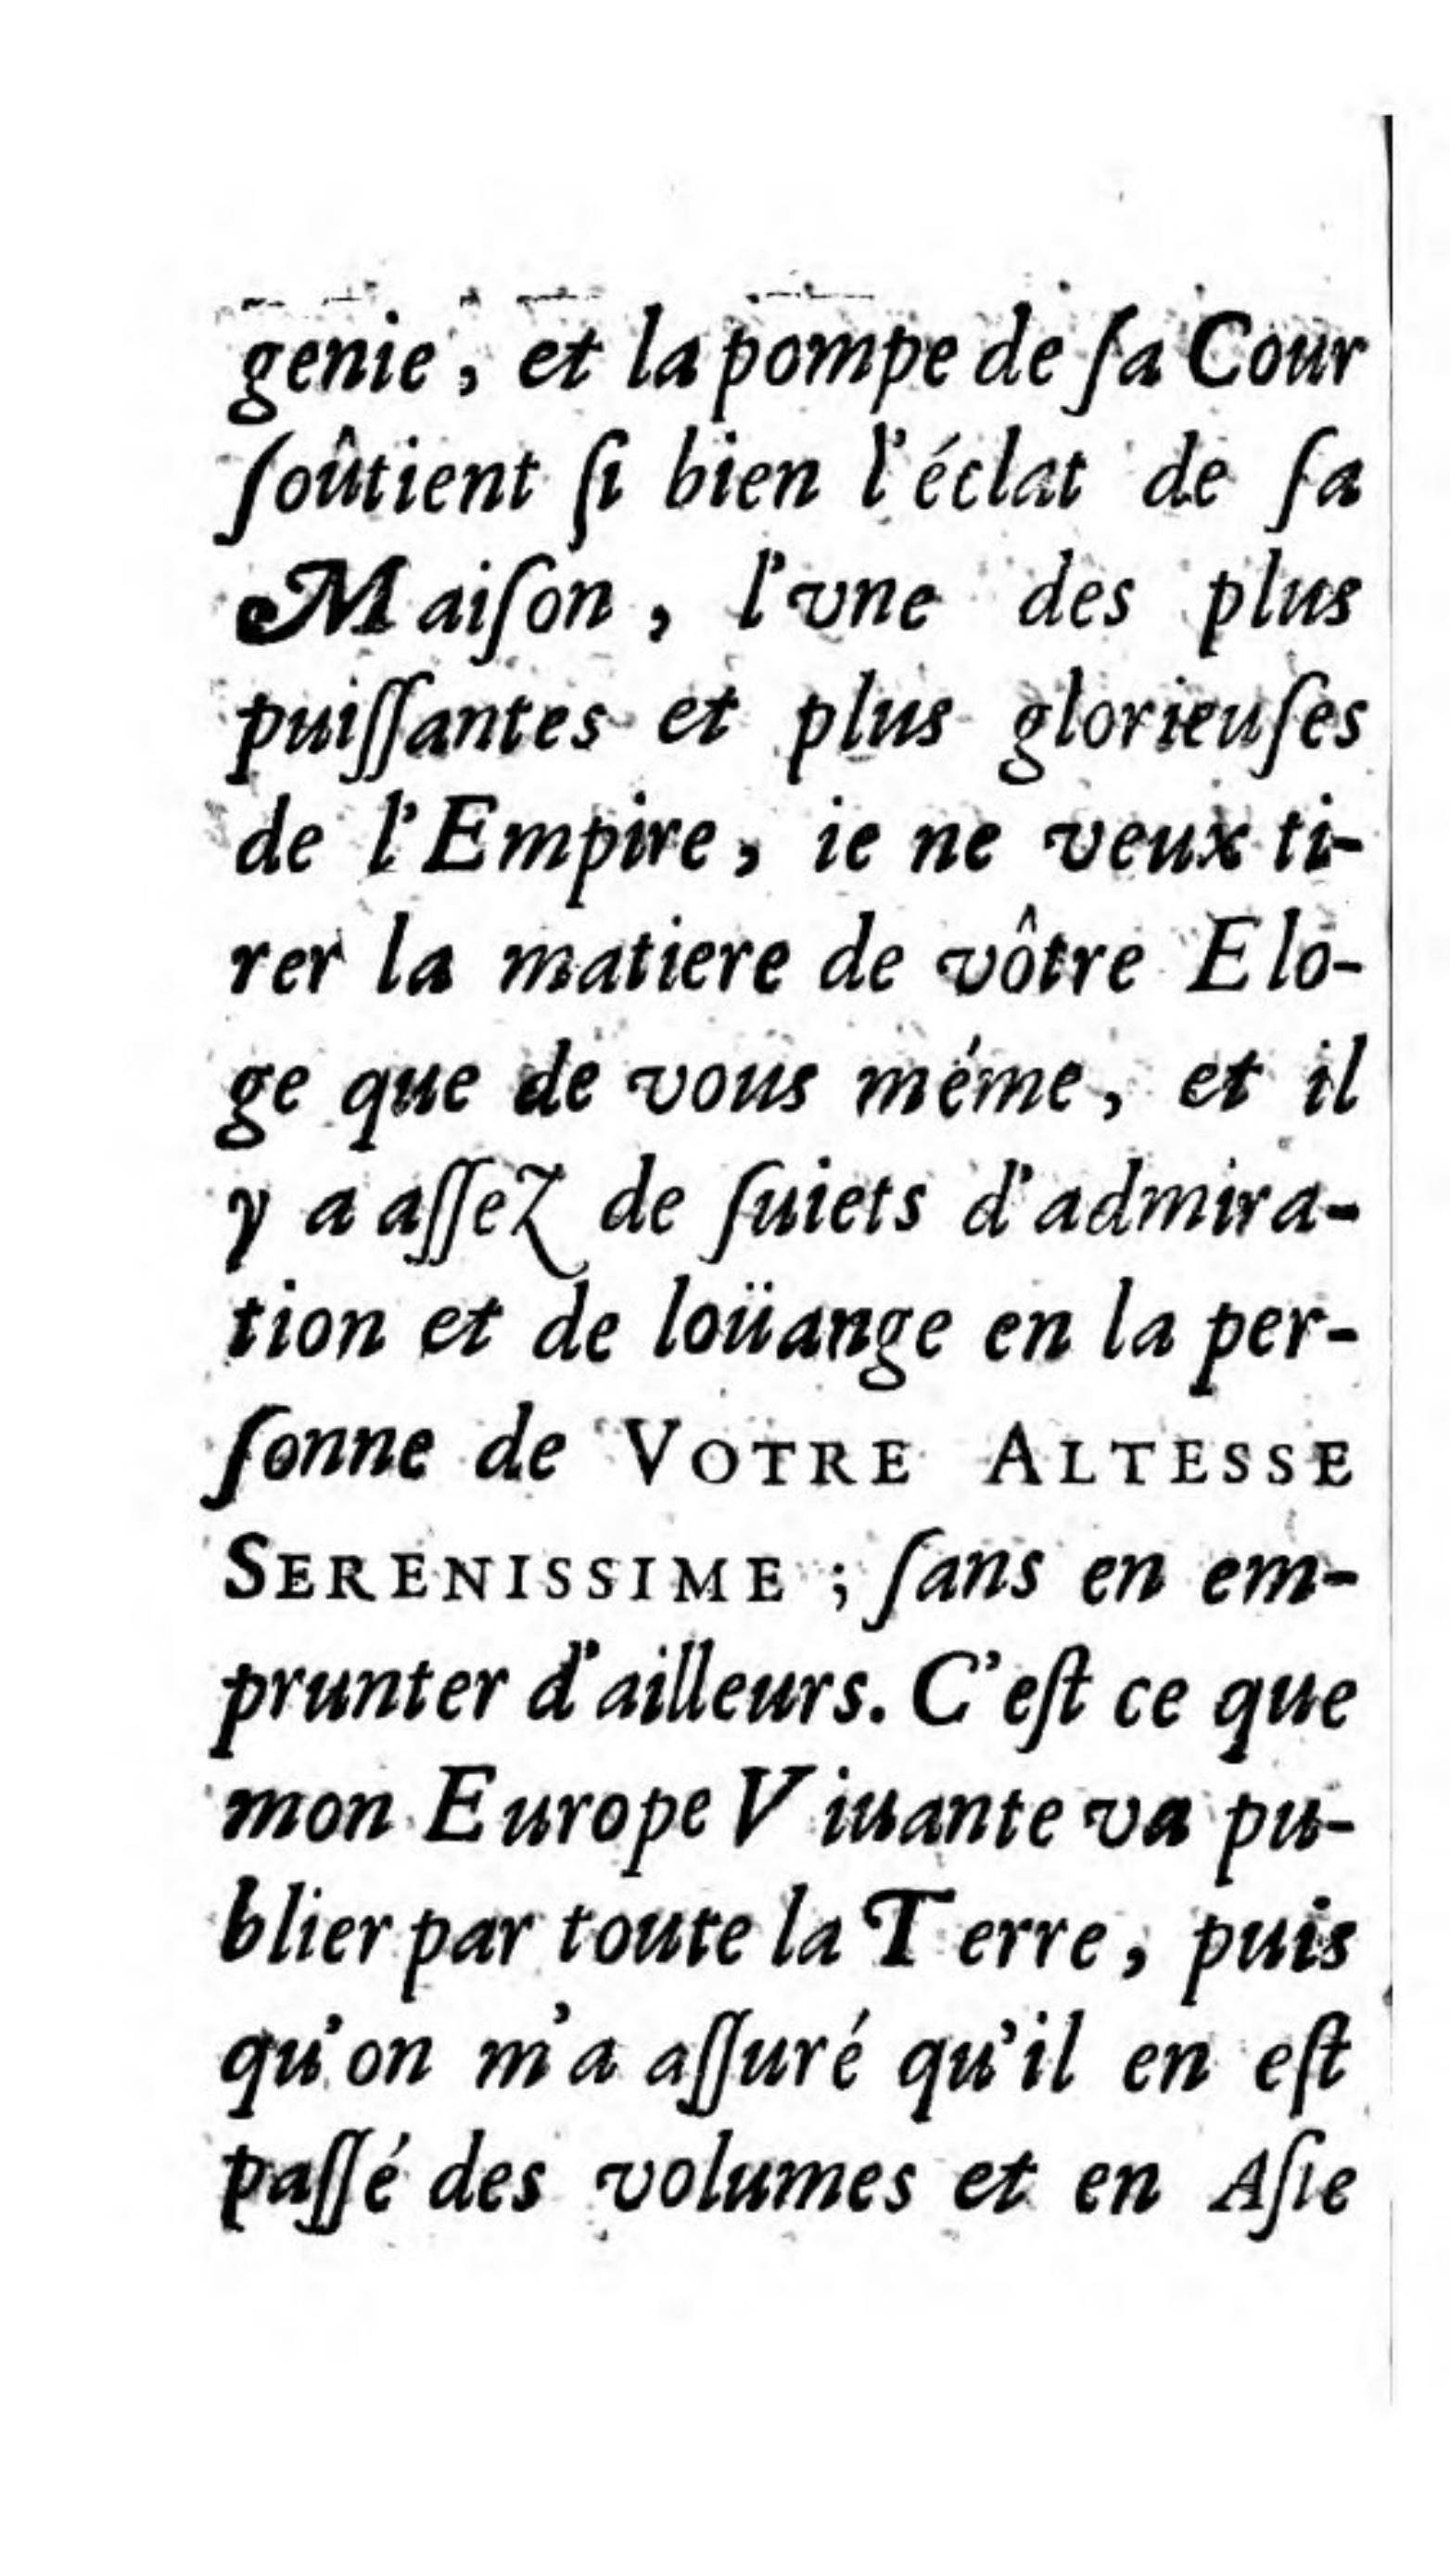 genie, et la pompe de ſa Cour
ſoûtient ſi bien l'éclat de ſa
Maiſon, l'vne des plus
puiſſantes et plus glorieuſes
de l'Empire, ie ne veux ti-
rer la matiere de vôtre Elo-
ge que de vous méme, et il
y a aſſez de ſuiets d'admira-
tion et de loüange en la per-
ſonne de VOTRE ALTESSE
SERENISSIME; ſans en em-
prunter d'ailleurs. C'eſt ce que
mon Europe Viuante va pu-
blier par toute la Terre, puis
qu'on m'a aſſuré qu'il en eſt
paſſé des volumes et en Aſie